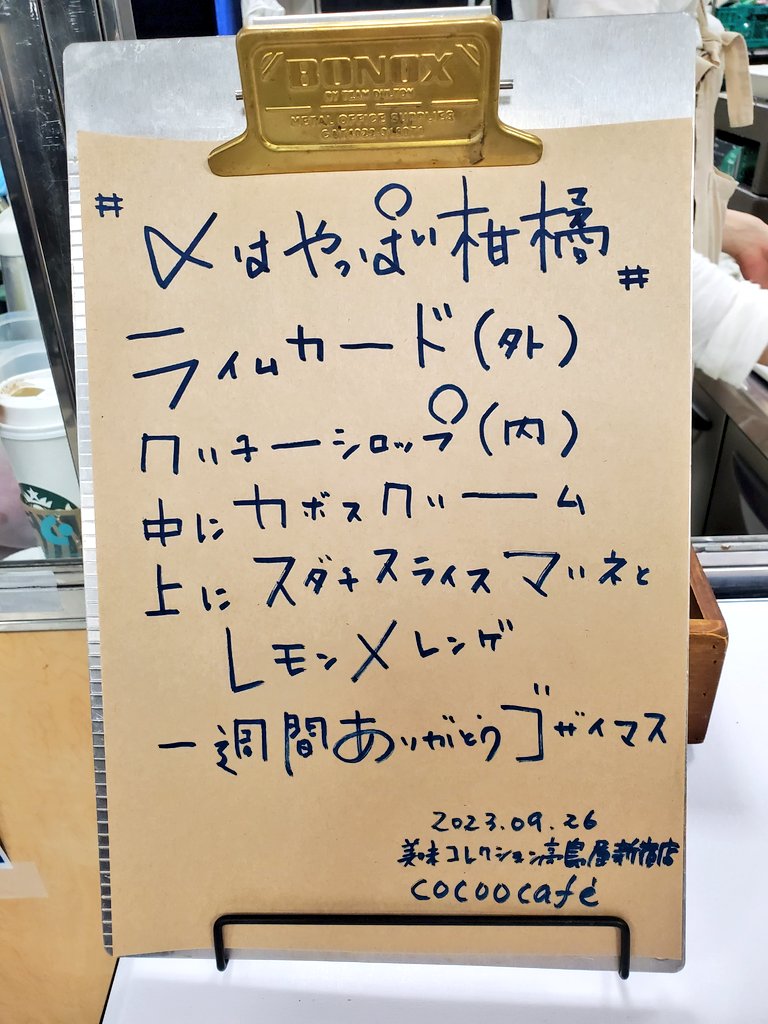 BONOX
BY BEAM DULTON
METAL OFFICE SUPPLIES
# 〆はやっぱり柑橘 #
ライムカード(外)
クッキーショップ(内)
中にカボスクリーム
上にスダチスライスマリネと
レモンメレンゲ
一週間ありがとうゴザイマス
2023.09.26
美味コレクション高島屋新宿店
cocoocafé